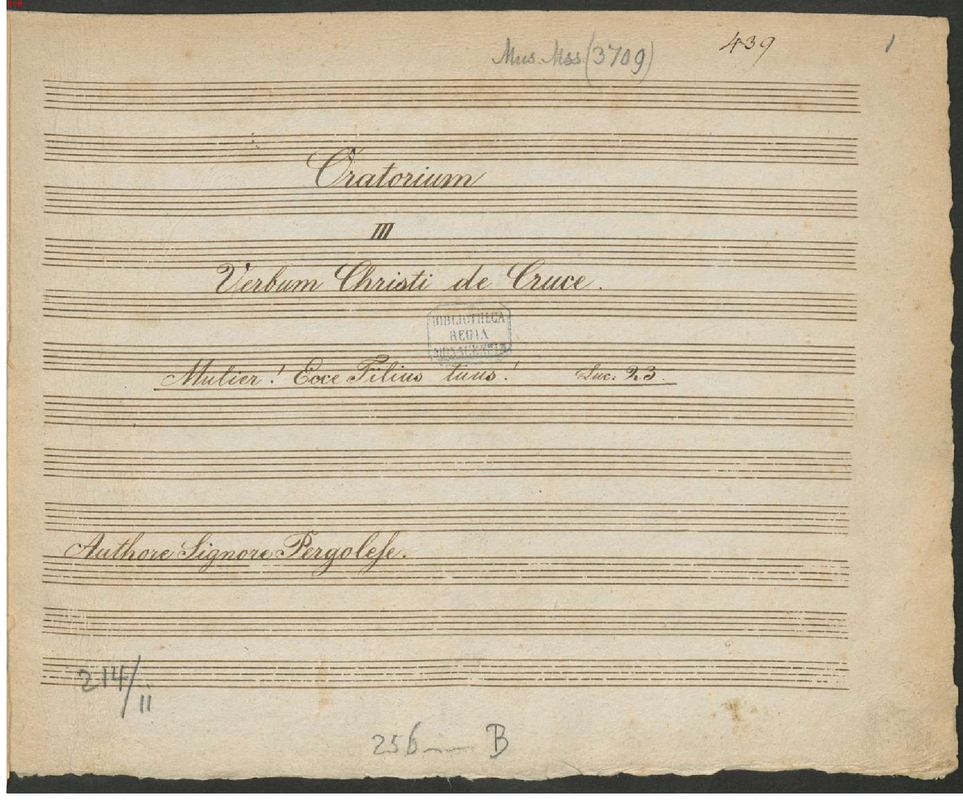 Mus. Mss. (3709) 439 1
Oratorium
III
Verbum Christi de Cruce.
BIBLIOTHECA
REGIA
MONACENSIS
Mulier! Ecce Filius tuus! Luc. 23.
Authore Signore Pergolese.
214/II
256 — B